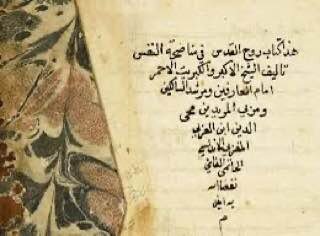 هذا كتاب روح القدس في مناصحة النفس
تأليف الشيخ الاكبر والكبريت الاحمر
امام العارفين ومرشد السالكين
ومربي المريدين محي
الدين ابن العربي
المغربي الاندلسي
الحاتمي الطائي
نفعنا الله
به امين
م